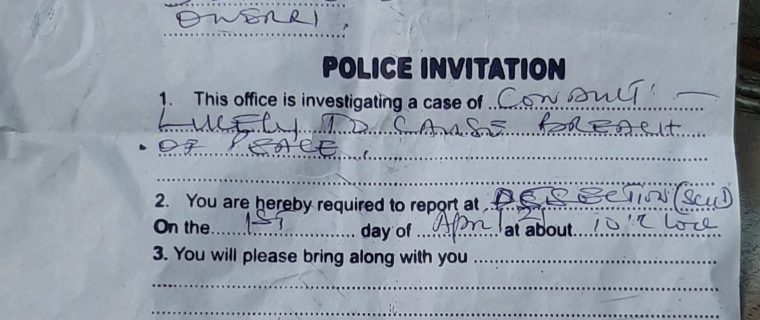 OWERRI,
POLICE INVITATION
1. This office is investigating a case of CONDUCT -
LIKELY TO CAUSE BREACH
OF PEACE.
2. You are hereby required to report at SECTION
On the 1ST day of April at about 10'clock
3. You will please bring along with you